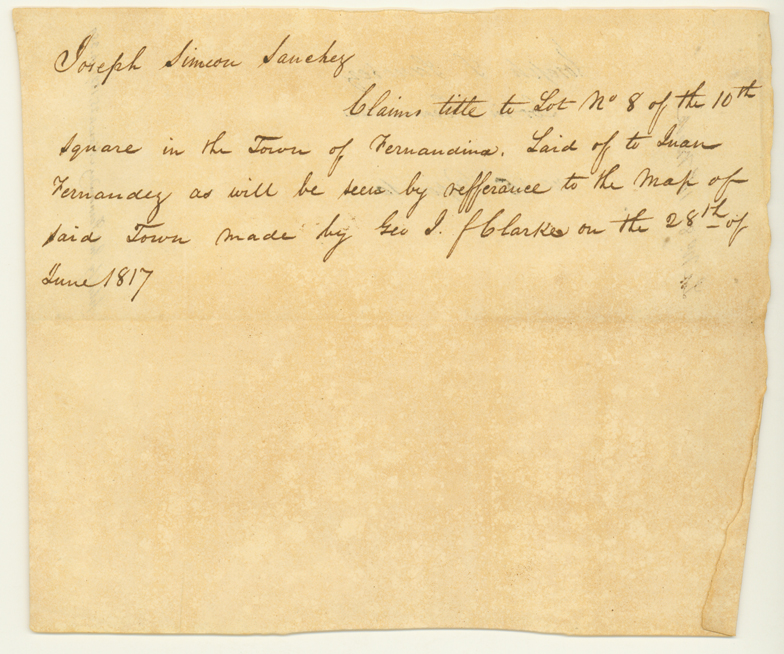 Joseph Simeon Sanchez
Claims title to Lot No 8 of the 10th
square in the Town of Fernandina. Laid of to Juan
Fernandez as will be seen by refferance to the Map of
said Town made by Geo I. F Clarke on the 28th of
June 1817